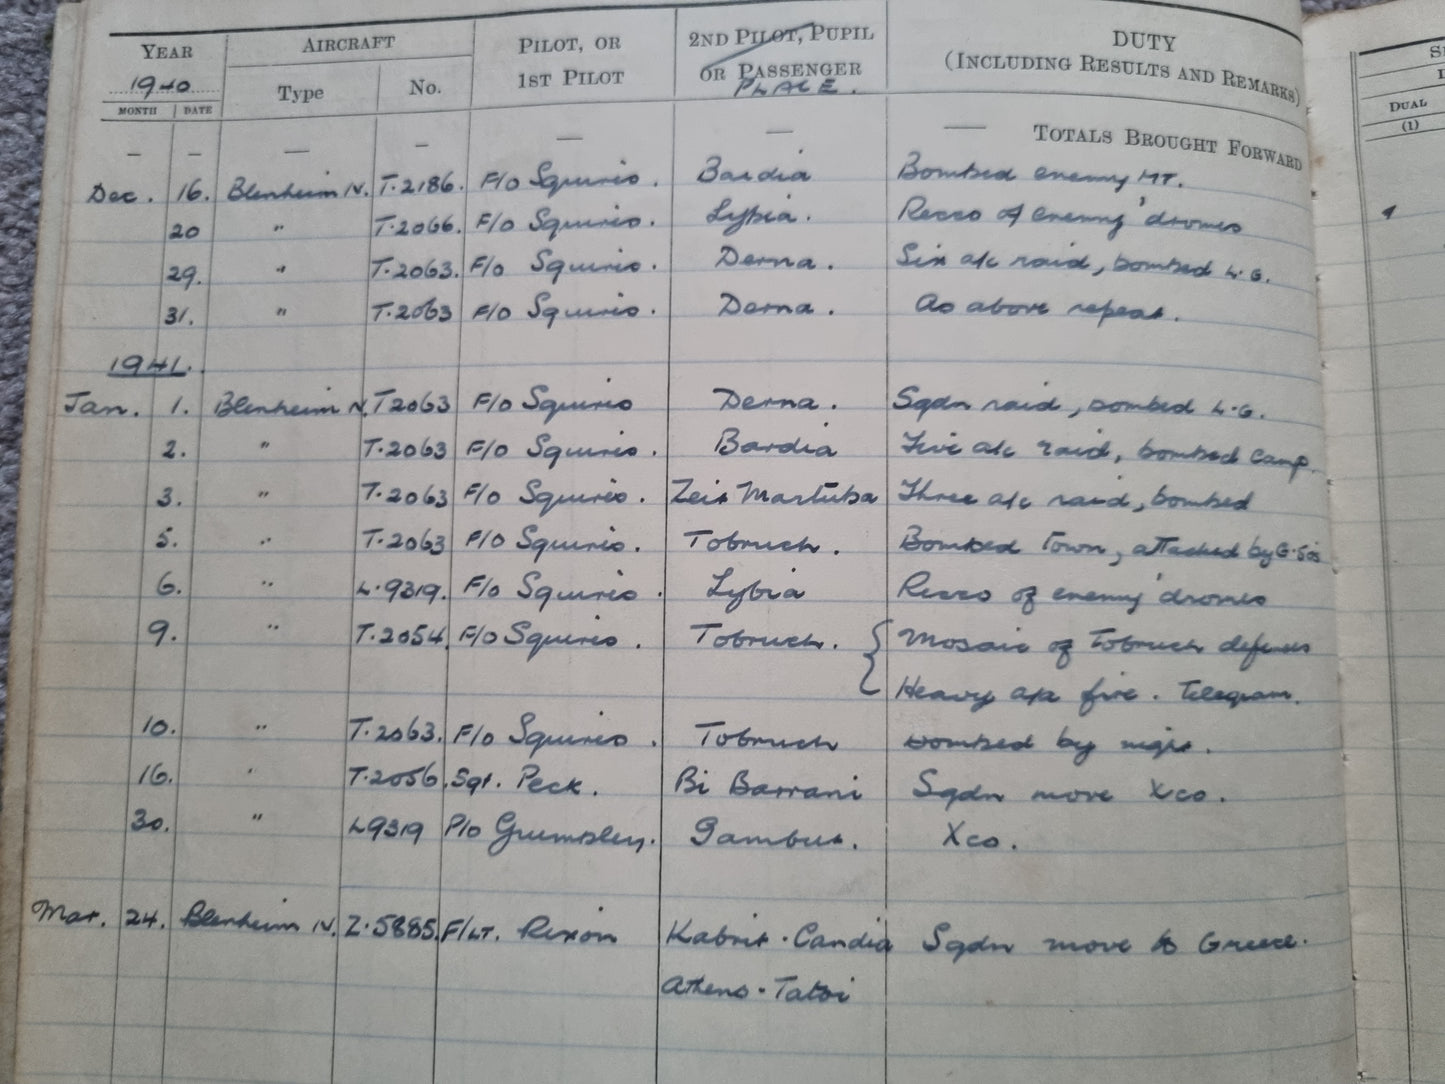 YEAR AIRCRAFT PILOT, OR 2ND PILOT, PUPIL DUTY
1940 Type No. 1ST PILOT OR PASSENGER (INCLUDING RESULTS AND REMARKS)
MONTH DATE PLACE.
DUAL
(1)
— — — — — — — TOTALS BROUGHT FORWARD
Dec. 16. Blenheim IV. T.2186. F/O Squires. Bardia Bombed enemy MT.
20 " T.2066. F/O Squires. Lybia. Recco of enemy 'dromes
29. " T.2063. F/O Squires. Derna. Six a/c raid, bombed L.G.
31. " T.2063 F/O Squires. Derna. As above repeat.
1941.
Jan. 1. Blenheim IV. T2063 F/O Squires Derna. Sqdn raid, bombed L.G.
2. " T.2063 F/O Squires. Bardia Five a/c raid, bombed camp.
3. " T.2063 F/O Squires. Martuba Three a/c raid, bombed
5. " T.2063 F/O Squires. Tobruch. Bombed Town, attacked by G.50s
6. " L.9319. F/O Squires. Lybia Recco of enemy 'dromes
9. " T.2054 F/O Squires. Tobruch. { Mosaic of Tobruch defences
Heavy a/a fire. Telegram.
10. " T.2063. F/O Squires. Tobruch bombed by night.
16. " T.2056. Sgt. Peck. Bi Barrani Sqdn move Xco.
30. " L9319 P/O Gambut. Xco.
Mar. 24. Blenheim IV. Z.5885. F/LT. Rixon Kabrit. Candia Sqdn move to Greece.
Athens. Tatoi